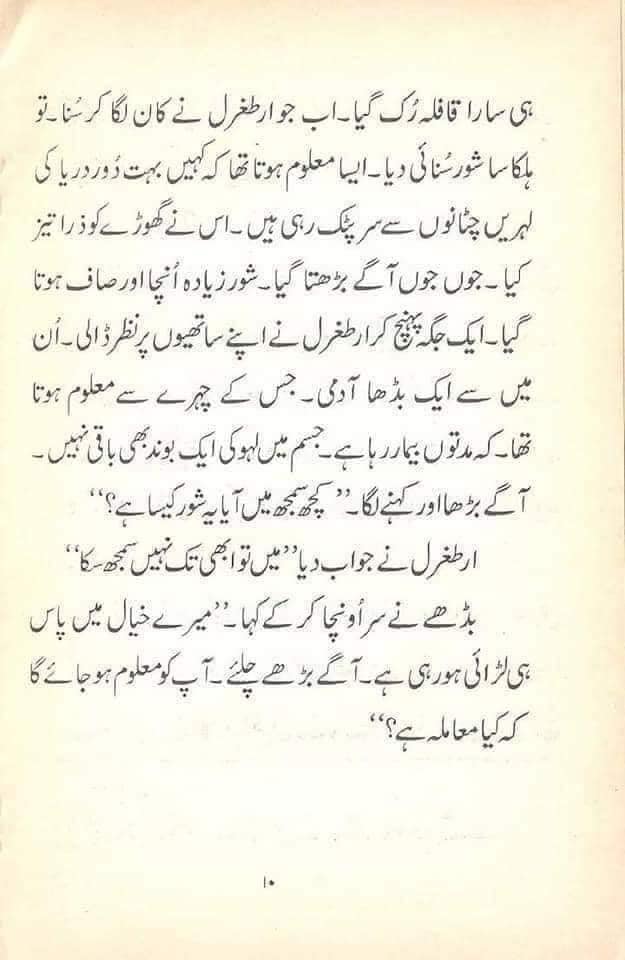 ہی سارا قافلہ رُک گیا۔ اب جو ارطغرل نے کان لگا کر سُنا۔ تو
ہلکا سا شور سُنائی دیا۔ ایسا معلوم ہوتا تھا کہ کہیں بہت دُور دریا کی
لہریں چٹانوں سے سر پٹک رہی ہیں۔ اس نے گھوڑے کو ذرا تیز
کیا۔ جوں جوں آگے بڑھتا گیا۔ شور زیادہ اُنچا اور صاف ہوتا
گیا۔ ایک جگہ پہنچ کر ارطغرل نے اپنے ساتھیوں پر نظر ڈالی۔ اُن
میں سے ایک بڈھا آدمی۔ جس کے چہرے سے معلوم ہوتا
تھا۔ کہ مدتوں بیمار رہا ہے۔ جسم میں لہو کی ایک بوند بھی باقی نہیں۔
آگے بڑھا اور کہنے لگا۔ ”کچھ سمجھ میں آیا یہ شور کیسا ہے؟“
ارطغرل نے جواب دیا ”میں تو ابھی تک نہیں سمجھ سکا“
بڈھے نے سر اُونچا کر کے کہا۔ ”میرے خیال میں پاس
ہی لڑائی ہو رہی ہے۔ آگے بڑھے چلئے۔ آپ کو معلوم ہو جائے گا
کہ کیا معاملہ ہے؟“
۱۰